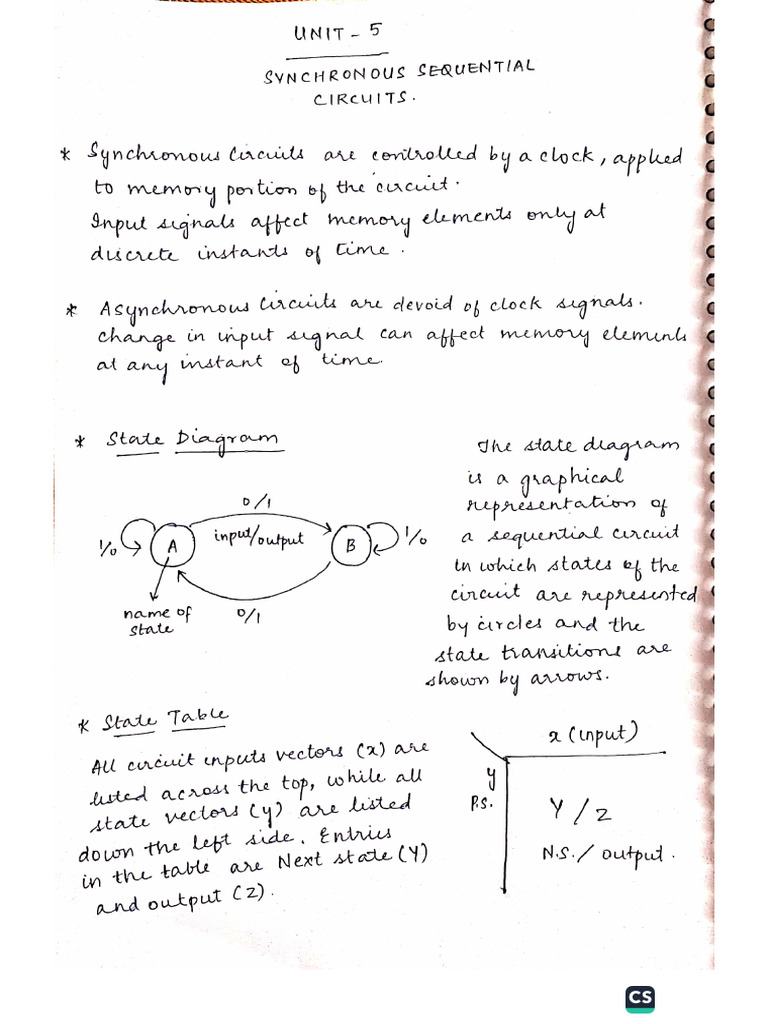 UNIT - 5
SYNCHRONOUS SEQUENTIAL
CIRCUITS.
* Synchronous Circuits are controlled by a clock, applied
to memory portion of the circuit.
Input signals affect memory elements only at
discrete instants of time.
* Asynchronous Circuits are devoid of clock signals.
change in input signal can affect memory elements
at any instant of time.
* State Diagram
0/1
1/0
A
input/output
B
1/0
name of
state
0/1
The state diagram
is a graphical
representation of
a sequential circuit
in which states of the
circuit are represented
by circles and the
state transitions are
shown by arrows.
* State Table
All circuit inputs vectors (x) are
listed across the top, while all
state vectors (y) are listed
down the left side. Entries
in the table are Next state (Y)
and output (Z).
x (input)
y
P.S.
Y/Z
N.S./ output.
CS